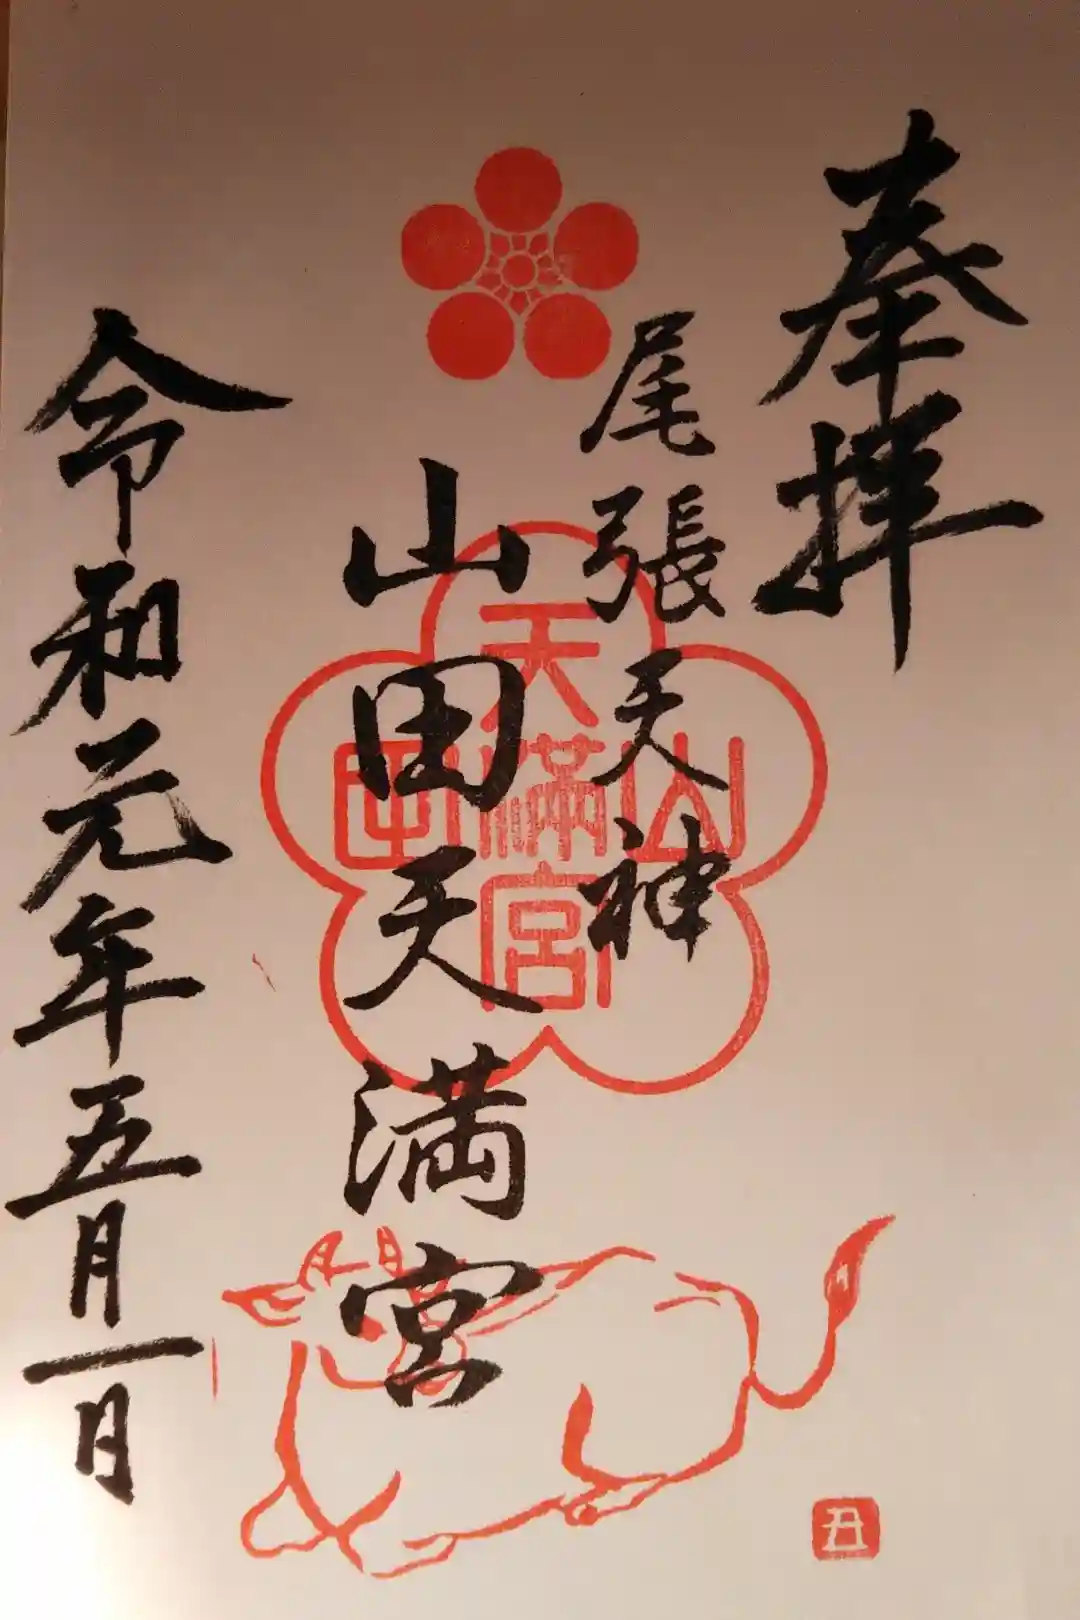 奉拝
尾張天神
山田天満宮
令和元年五月一日
天
山満田
宮
丑